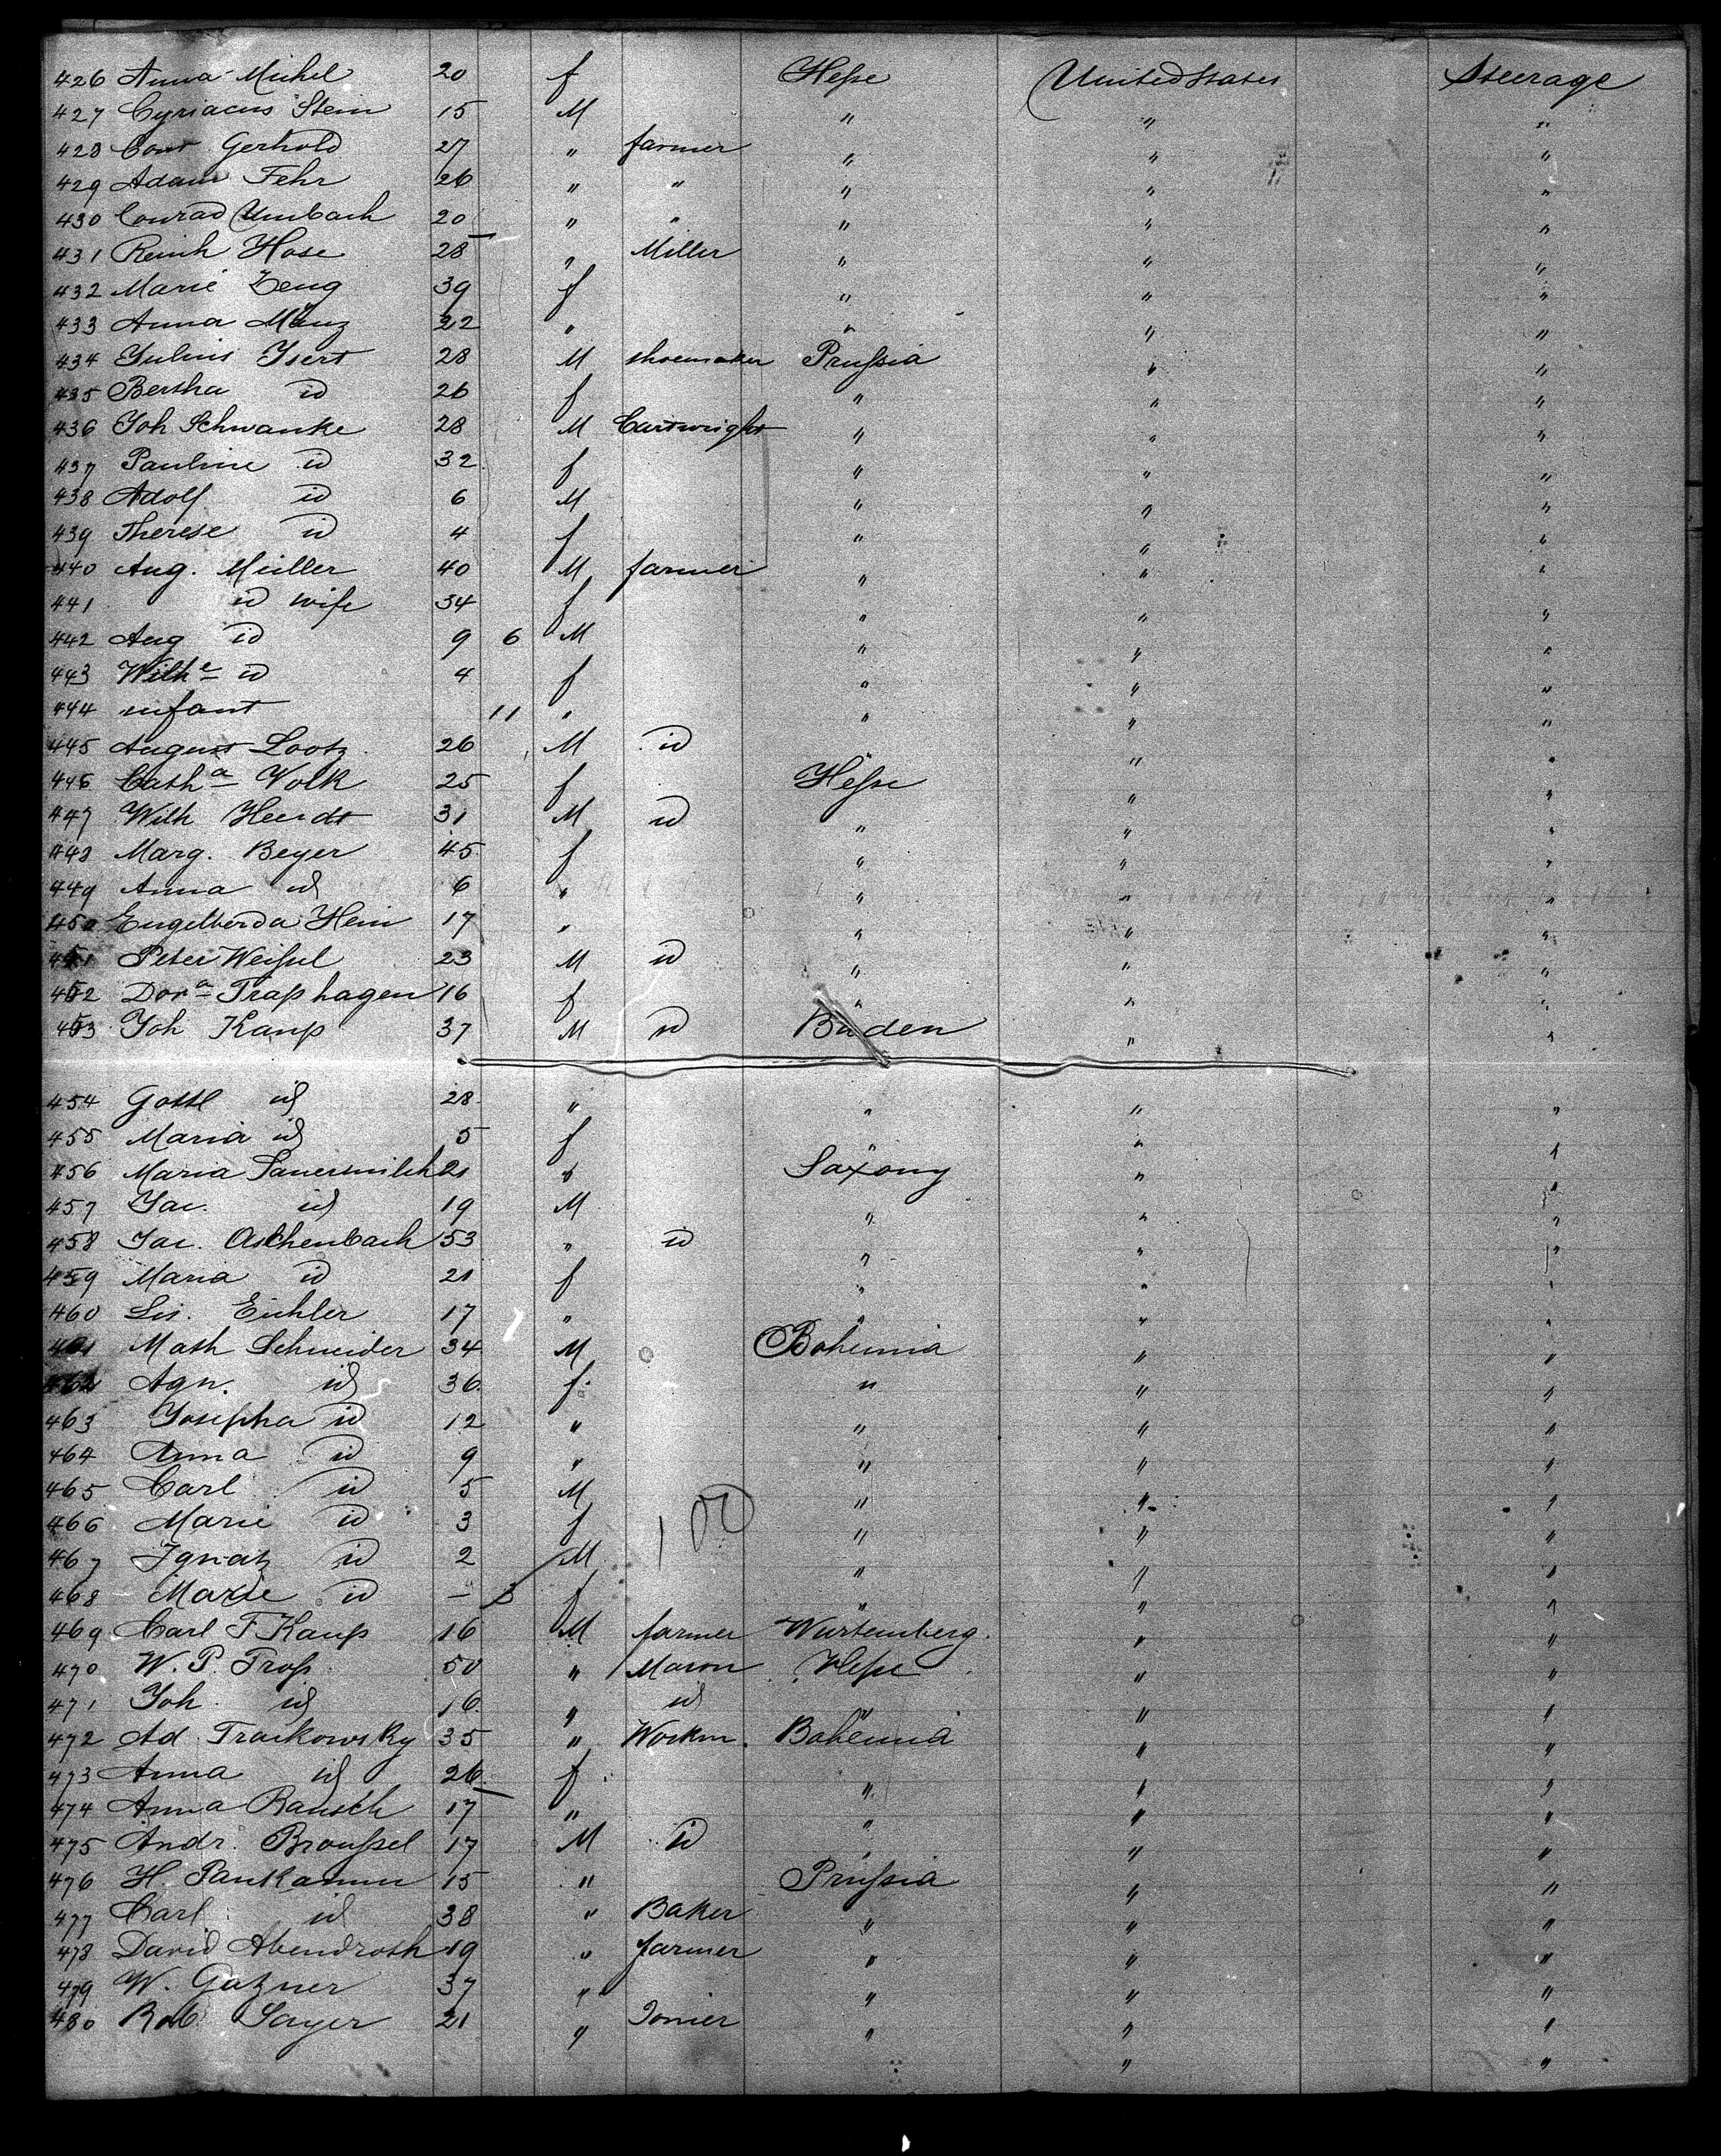 426 Anna Michel 20 f Hesse United States Steerage
427 Cyriacus Stein 15 M " " "
428 Conr Gerhold 27 " farmer " " "
429 Adam Fehr 26 " " " " "
430 Conrad Umbach 20 " " " " "
431 Reinh Hose 28 " Miller " " "
432 Marie Zeug 39 f " " "
433 Anna Münz 22 " " " "
434 Julius Isert 28 M shoemaker Prussia " "
435 Bertha id 26 f " " "
436 Joh Schwanke 28 M Cartwright " " "
437 Pauline id 32 f " " "
438 Adolf id 6 M " " "
439 Therese id 4 f " " "
440 Aug. Müller 40 M farmer " " "
441 id wife 34 f " " "
442 Aug id 9 6 M " " "
443 Wilhe id 4 f " " "
444 infant 11 " " " "
445 August Lootz 26 M id " " "
446 Catha Volk 25 f Hesse " "
447 Wilh Heerdt 31 M id " " "
448 Marg. Beyer 45 f " " "
449 Anna id 6 " " " "
450 Engelberda Hein 17 " " " "
451 Peter Weissel 23 M id " " "
452 Dora Traphagen 16 f " " "
453 Joh Kaup 37 M id Baden " "
454 Gottl id 28 " " " "
455 Maria id 5 f " " "
456 Maria Sauermilch 21 " Saxony " "
457 Jac. id 19 M " " "
458 Jac. Aschenbach 53 " id " " "
459 Maria id 21 f " " "
460 Lis. Eichler 17 " " " "
461 Math Schneider 34 M Bohemia " "
462 Agn. id 36 f " " "
463 Josepha id 12 " " " "
464 Anna id 9 " " " "
465 Carl id 5 M " " "
466 Marie id 3 f " " "
467 Ignatz id 2 M " " "
468 Marie id – 3 f " " "
469 Carl F. Kaup 16 M farmer Wurtemberg. " "
470 W. P. Tross 50 " Mason Hesse " "
471 Joh id 16 " id " " "
472 Ad. Traikowsky 35 " Workm. Bohemia " "
473 Anna id 26 f " " "
474 Anna Rausch 17 " " " "
475 Andr. Broussel 17 M id " " "
476 H. Pankamm 15 " Prussia " "
477 Carl id 38 " Baker " " "
478 David Abendroth 19 " farmer " " "
479 W. Gazner 37 " " " "
480 Rob Sayer 21 " Joiner " " "
" "